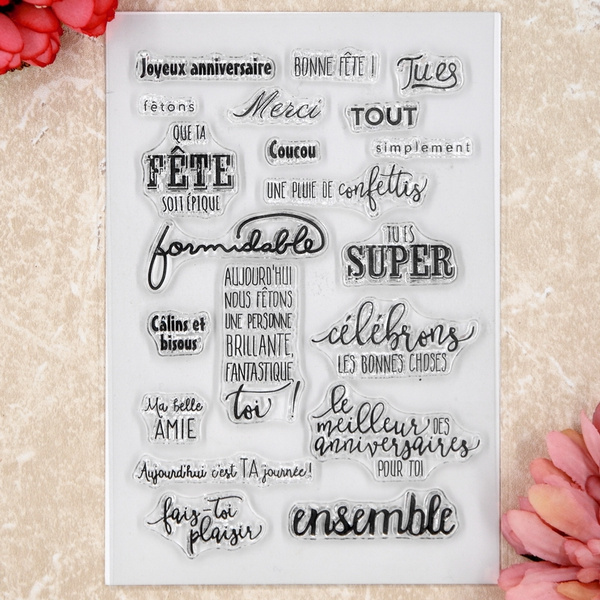 Joyeux anniversaire
BONNE FÊTE !
Tu es
fêtons
Merci
TOUT
QUE TA
FÊTE
SOIT ÉPIQUE
Coucou
simplement
UNE PLUIE DE confettis
formidable
TU ES
SUPER
AUJOURD'HUI
NOUS FÊTONS
UNE PERSONNE
BRILLANTE,
FANTASTIQUE,
toi !
Câlins et
bisous
célébrons
LES BONNES CHOSES
Ma belle
AMIE
le
meilleur DES
anniversaires
POUR TOI
Aujourd'hui c'est TA journée!
fais-toi
plaisir
ensemble